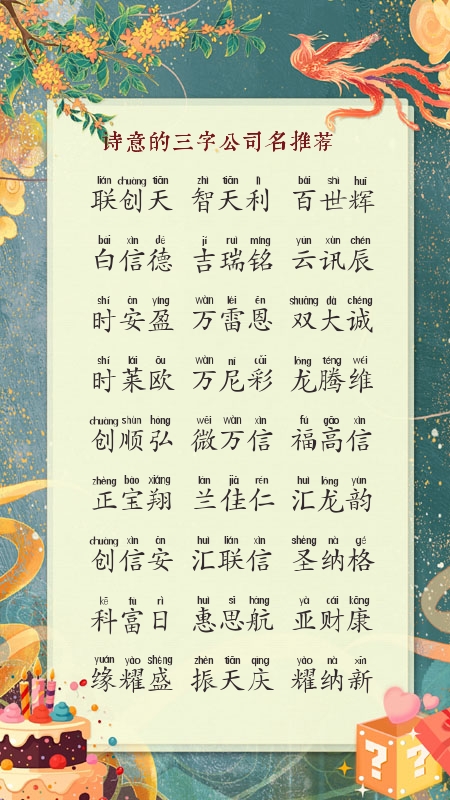 诗意的三字公司名推荐
lián chuàng tiān zhì tiān lì bǎi shì huī
联创天 智天利 百世辉
bái xìn dé jí ruì míng yún xùn chén
白信德 吉瑞铭 云讯辰
shí ān yíng wàn léi ēn shuāng dà chéng
时安盈 万雷恩 双大诚
shí lái ōu wàn ní cǎi lóng téng wéi
时莱欧 万尼彩 龙腾维
chuàng shùn hóng wēi wàn xìn fú gāo xìn
创顺弘 微万信 福高信
zhèng bǎo xiáng lán jiā rén huì lóng yùn
正宝翔 兰佳仁 汇龙韵
chuàng xìn ān huì lián xìn shèng nà gé
创信安 汇联信 圣纳格
kē fù rì huì sī háng yà cái kāng
科富日 惠思航 亚财康
yuán yào shèng zhèn tiān qìng yào nà xīn
缘耀盛 振天庆 耀纳新